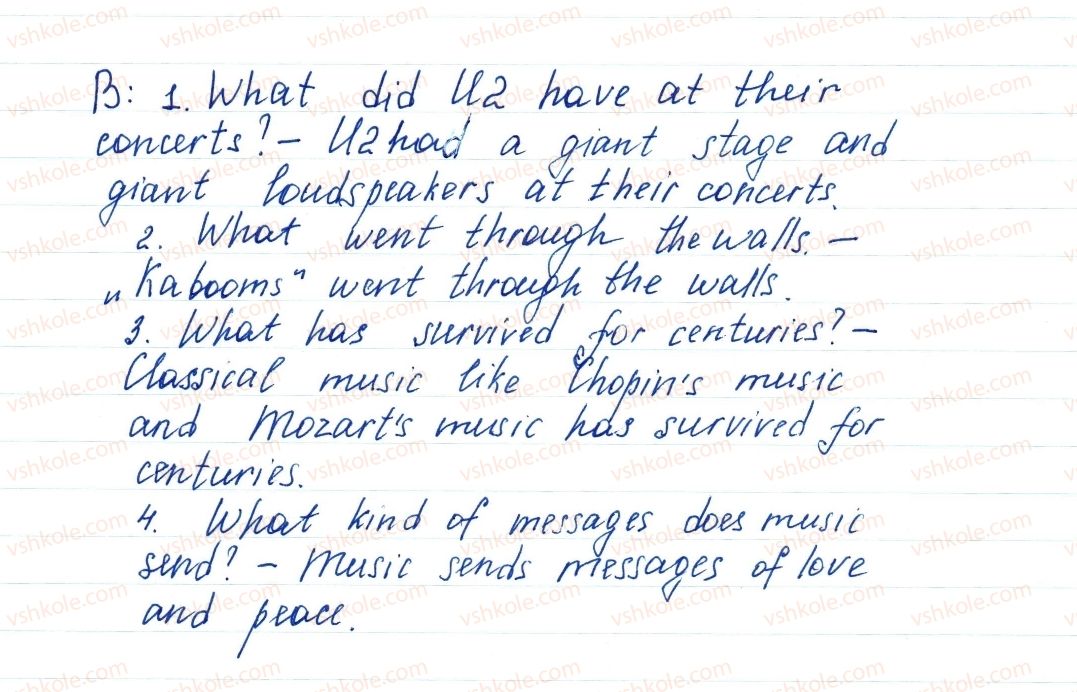 B: 1. What did U2 have at their
concerts? – U2 had a giant stage and
giant loudspeakers at their concerts.
2. What went through the walls. –
„Kabooms" went through the walls.
3. What has survived for centuries? –
Classical music like Chopin's music
and Mozart's music has survived for
centuries.
4. What kind of messages does music
send? – Music sends messages of love
and peace.